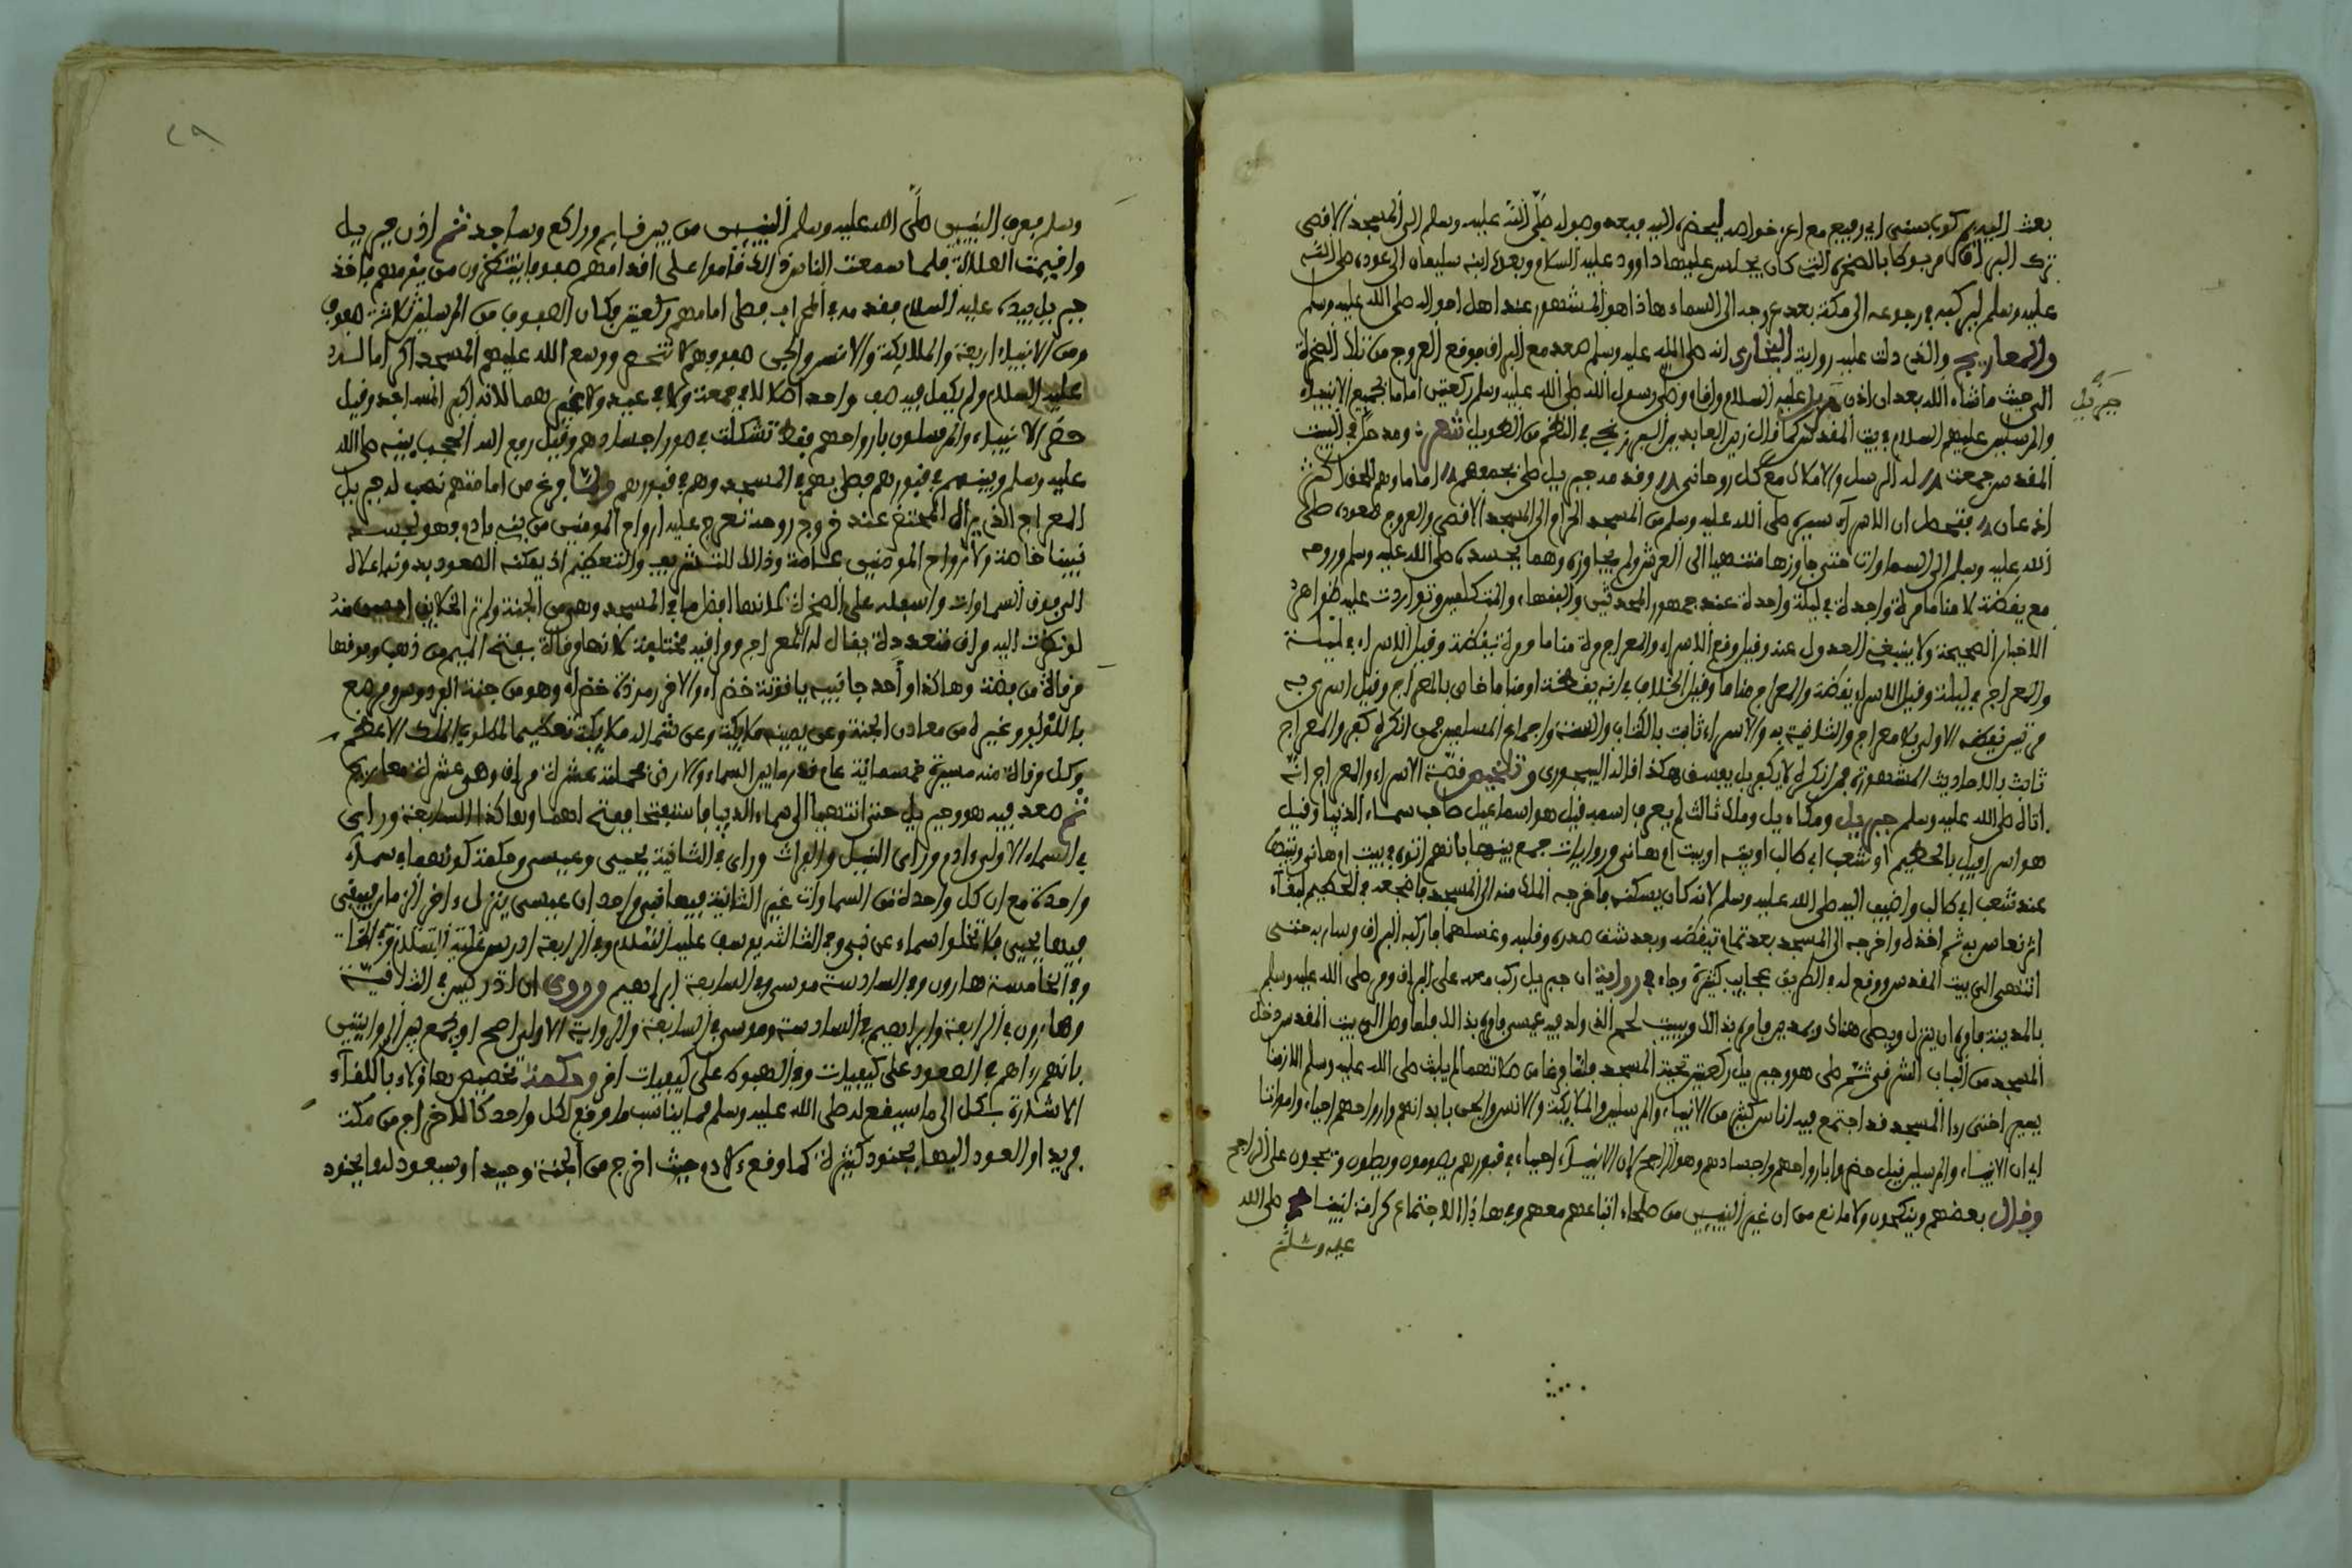 بعث اليه يم كون بمنى اي رفيع مع اعز خواصه ليحضره اليه فبعد وصوله صلى الله عليه وسلم الى المسجد الاقصى
ترك البراق مربوطا بالصخرة التى كان يجلس عليها داوود عليه السلام وبعده ابنه سليمان الى عوده صلى الله
عليه وسلم ليركبه في رجوعه الى مكة بعد عروجه الى السماء هاذا هو المشهور عند اهل احواله صلى الله عليه وسلم
والمعاريج والذي دلت عليه رواية البخارى انه صلى الله عليه وسلم صعد مع البراق فوقع العروج من تلك الصخرة
الى حيث ماشاء الله بعد ان اذن جبريل عليه السلام واقام وصلى رسول الله صلى الله عليه وسلم ركعتين اماما لجميع الانبياء
جبريل
والمرسلين عليهم السلام في بيت المقدس كما قال زين العابدين البرزنجي في النظم من الطويل شعر ومدخل في البيت
المقدس جمعت له الرسل والاملاك مع كل روحانى وقد مد جبريل صلى بجمعهم اماما وهم للحق اكثر
اذعان فتحصل ان الاسراء سيره صلى الله عليه وسلم من المسجد الحرام الى المسجد الاقصى والعروج صعوده صلى
الله عليه وسلم الى السماوات حتى جاوزها منتهيا الى العرش ولم يجاوزه وهما بجسده صلى الله عليه وسلم وروحه
مع يقضة لا مناما مرة واحدة في ليلة واحدة عند جمهور المحدثين والفقهاء والمتكلمين وتواردت عليه ظواهر
الاخبار الصحيحة ولا ينبغى العدول عنه وقيل وقع الاسراء والمعراج مرة مناما ومرة يقضة وقيل الاسراء في ليلة
والمعراج في ليلة وقيل الاسراء يقضة والمعراج مناما وقيل الخلاف في انه يقضة او مناما خاص بالمعراج وقيل اسرى به
مرتين يقضة الاولى بلا معراج والثانية به والاسراء ثابت بالكتاب والسنة واجماع المسلمين فمن انكره كفر والمعراج
ثابت بالاحاديث المشهورة فمن انكره لا يكفر بل يفسق هكذا قاله البيجورى وتلخيص قصة الاسراء والمعراج انه
اتاه صلى الله عليه وسلم جبريل وميكاءيل وملك ثالث لم يعرف اسمه قيل هو اسماعيل صاحب سماء الدنيا وقيل
هو اسرافيل بالحطيم او شعب ابي طالب او بيته او بيت ام هانى روايات جمع بينها بانهم اتوه في بيت ام هانى وبيتها
عند شعب ابي طالب واضيف اليه صلى الله عليه وسلم لانه كان يسكنه فاخرجه الملك منه الى المسجد فاضجعه في الحطيم لبقاء
اثر نعاس به ثم اخذه واخرجه الى المسجد بعد تمام تيقضه وبعد شق صدره وقلبه وغسلهما فاركبه البراق وسار به حتى
انتهى الى بيت المقدس ووقع له في الطريق عجايب كثيرة وجاء في رواية ان جبريل ركب معه على البراق ومر صلى الله عليه وسلم
بالمدينة فامره ان ينزل ويصلى هناك وبمدين فامره بذالك وببيت لحم الذي ولد فيه عيسى فامره بذالك فلما وصل الى بيت المقدس دخل
المسجد من الباب الشرقى ثم صلى هو وجبريل ركعتين تحية المسجد فلما فرغا من صلاتهما لم يلبث صلى الله عليه وسلم الا زمنا
يسيرا حتى راا المسجد قد اجتمع فيه اناس كثير من الانبياء والمرسلين والملايكة والانس والجن بابدانهم وارواحهم احياء وامواتا
اي ان الانبياء والمرسلين قيل حضروا بارواحهم واجسادهم وهو الراجح لان الانبياء احياء في قبورهم يصومون ويصلون ويحجون على الراجح
وقال بعضهم وينكحون ولا مانع من ان غير النبيين من صلحاء اتباعهم معهم في هاذا الاجتماع كرامة لنبينا صلى الله
عليه وسلم
وسلم فعرف النبيين صلى الله عليه وسلم النبيين من بين قايم وراكع وساجد ثم اذن جبريل
واقيمت الصلاة فلما سمعت الناس ذالك قاموا على اقدامهم صفوفا ينتظرون من يومهم فاخذ
جبريل بيده عليه السلام فقدمه في المحراب فصلى امامهم ركعتين وكان الصفوف من المرسلين ثلاثة صفوف
ومن الانبياء اربعة والملايكة والانس والجن صفوفهم لا تنحصر ووسع الله عليهم المسجد اكراما لسيدنا
عليه السلام ولم يكمل فيه صف واحد اصلا لا في جمعة ولا في عيد ولا غيرهما لانه اكبر المساجد وقيل
حضر الانبياء والمرسلون بارواحهم فقط تشكلت في صور اجسادهم وقيل رفع الله الحجب بينه صلى الله
عليه وسلم وبينهم في قبورهم فصلى بهم في المسجد وهم في قبورهم ولما فرغ من امامتهم نصب له جبريل
المعراج الذي يراه المحتضر عند خروج روحه تعرج عليه ارواح المومنين من بنى ءادم وهو لجسد
نبينا خاصة ولارواح المومنين عامة وذالك للتشريف والتعظيم اذ يمكنه الصعود بدونه اعلاه
الى فوق السماوات واسفله على الصخرة لانها افضل ما في المسجد وهي من الجنة ولم تر الخلايق احسن منه
له مرقات اليه مراق متعددة يقال له المعراج ومراقيه مختلفة لانها مرقاة بفتح الميم من ذهب وفوقها
مرقاة من فضة وهاكذا واحد جانبيه ياقوتة خضراء والاخر زمردة خضراء وهو من جنة الفردوس ومرصع
باللؤلؤ وغيره من معادن الجنة وعن يمينه ملايكة وعن شماله ملايكة تعظيما للملك الاعظم
وكل مرقاة منه مسيرة خمسمائة عام قدر ما بين السماء والارض فجملته عشرة مراق وهي عشرة معاريج
ثم صعد فيه هو وجبريل حتى انتهيا الى سماء الدنيا فاستفتحا ففتح لهما وهاكذا الى السابعة وراى
في السماء الاولى ءادم وراى النيل والفرات وراى في الثانية يحيى وعيسى وحكمة كونهما في سماء
واحدة مع ان كل واحدة من السماوات غير الثانية فيها نبي واحد ان عيسى ينزل ءاخر الزمان فيبقى
فيها يحيى فلا تخلو سماء عن نبى وفي الثالثة يوسف عليه السلام وفي الرابعة ادريس عليه السلام
وفي الخامسة هارون وفي السادسة موسى وفي السابعة ابراهيم وروى ان ادريس في الثالثة
وهارون في الرابعة وابراهيم في السادسة وموسى في السابعة والرواية الاولى اصح او يجمع بين الروايتين
بانهم رءاهم في الصعود على كيفيات وفي الهبوط على كيفيات اخر وحكمة تخصيص هاؤلاء باللقاء
الاشارة بكل الى ما سيقع له صلى الله عليه وسلم مما يناسب ما وقع لكل واحد كالاخراج من مكة
فريدا والعود اليها بجنود كثيرة كما وقع ءلادم حيث اخرج من الجنة وحيدا وسيعود لها بجنود